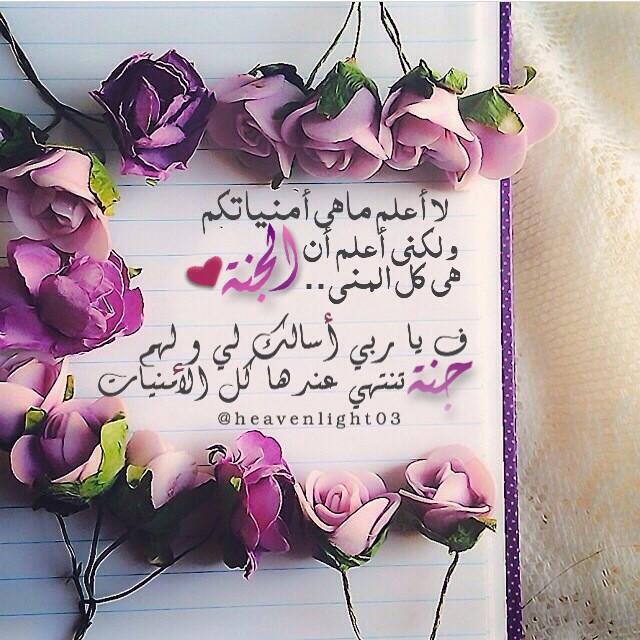 لا أعلم ماهي أمنياتكم
ولكني أعلم أن الجنة
هي كل المنى..
ف يا ربي أسالك لي ولهم
جنة تنتهي عندها كل الأمنيات
@heavenlight03